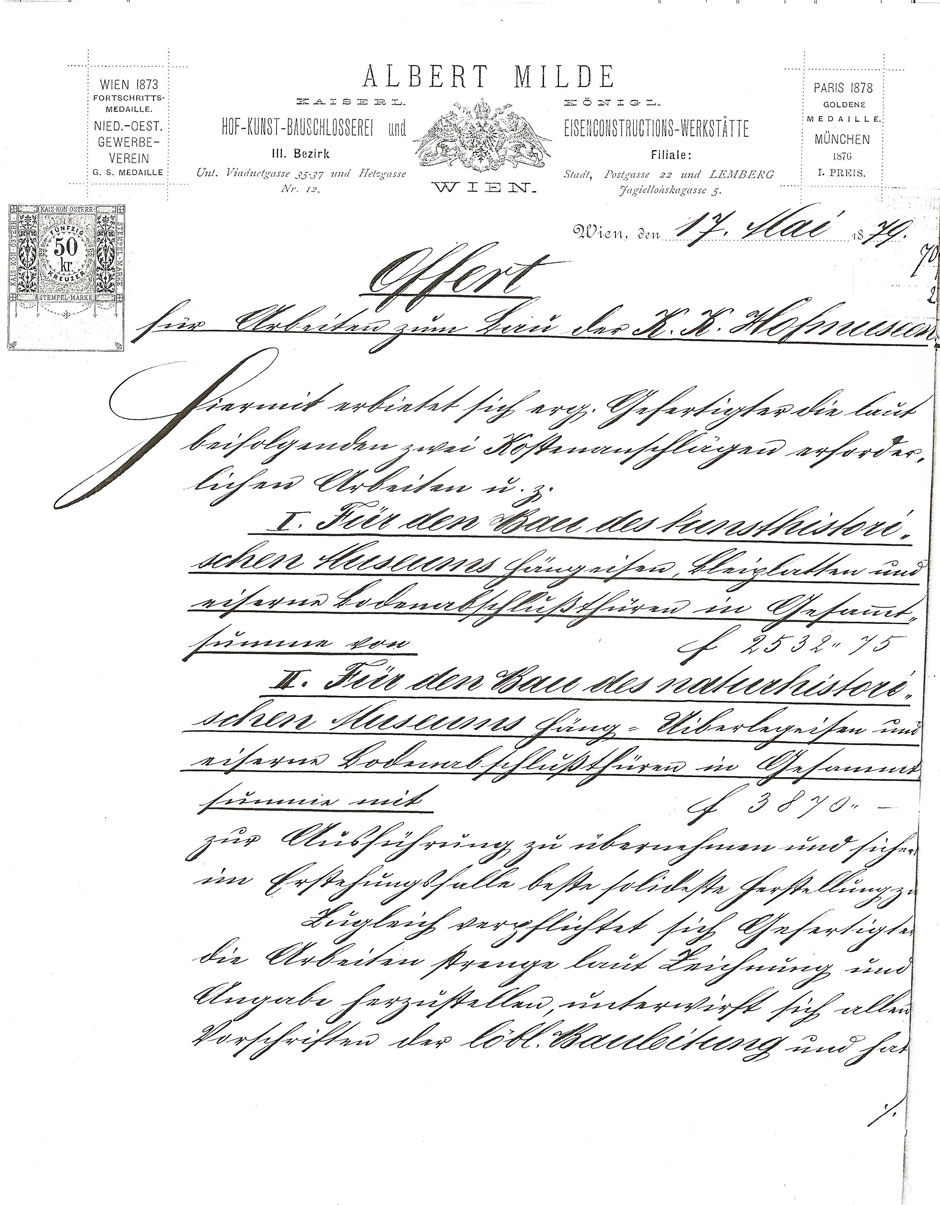 ALBERT MILDE
KAISERL. KÖNIGL.
HOF-KUNST-BAUSCHLOSSEREI und EISENCONSTRUCTIONS-WERKSTÄTTE
III. Bezirk
Unt. Viaductgasse 35-37 und Hetzgasse
Nr. 12.
Filiale:
Stadt, Postgasse 22 und LEMBERG
Jagiellońskagasse 5.
WIEN.
WIEN 1873
FORTSCHRITTS-
MEDAILLE.
NIED.-OEST.
GEWERBE-
VEREIN
G. S. MEDAILLE
PARIS 1878
GOLDENE
MEDAILLE.
MÜNCHEN
1876
I. PREIS.
KAIS·KÖN·ÖSTERR·
STEMPEL-MARKE
FÜNFZIG
50
kr.
KREUZER
STEMPEL-MARKE
Wien, den 17. Mai 1879.
Offert
für Arbeiten zum Bau der K. K. Hofmuseen.
Hiermit erbietet sich erg. Gefertigter die laut
beifolgenden zwei Kostenanschlägen erforder-
lichen Arbeiten u. z.
I. Für den Bau des kunsthistori-
schen Museums Hängeisen, Bleiplatten und
eiserne Bodenabschlußthüren in Gesammt-
summe von f 2532 " 75
II. Für den Bau des naturhistori-
schen Museums Häng- Ueberlegeisen und
eiserne Bodenabschlußthüren in Gesammt
summe mit f 3870 " —
zur Ausführung zu übernehmen und sicher
im Erstehungsfalle beste solideste Herstellung zu
Zugleich verpflichtet sich Gefertigter
die Arbeiten strenge laut Zeichnung und
Angabe herzustellen, unterwirft sich allen
Vorschriften der löbl. Bauleitung und hat
./.